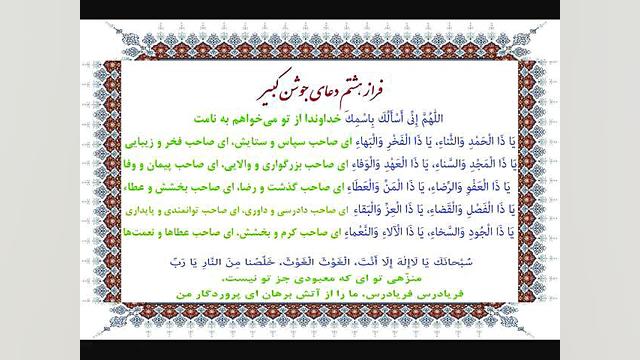 فراز هشتم دعای جوشن کبیر
اللّٰهُمَّ إِنِّی أَسْأَلُكَ بِاسْمِكَ خداوندا از تو می‌خواهم به نامت
یَا ذَا الْحَمْدِ وَالثَّناءِ، یَا ذَا الْفَخْرِ وَالْبَهاءِ ای صاحب سپاس و ستایش، ای صاحب فخر و زیبایی
یَا ذَا الْمَجْدِ وَالسَّناءِ، یَا ذَا الْعَهْدِ وَالْوَفاءِ ای صاحب بزرگواری و والایی، ای صاحب پیمان و وفا
یَا ذَا الْعَفْوِ وَالرِّضاءِ، یَا ذَا الْمَنِّ وَالْعَطَاءِ ای صاحب گذشت و رضا، ای صاحب بخشش و عطاء
یَا ذَا الْفَصْلِ وَالْقَضاءِ، یَا ذَا الْعِزِّ وَالْبَقاءِ ای صاحب دادرسی و داوری، ای صاحب توانمندی و پایداری
یَا ذَا الْجُودِ وَالسَّخاءِ، یَا ذَا الْآلاءِ وَالنَّعْماءِ ای صاحب کرم و بخشش، ای صاحب عطاها و نعمت‌ها
سُبْحانَكَ یَا لَاإِلٰهَ إِلّا أَنْتَ، الْغَوْثَ الْغَوْثَ، خَلِّصْنا مِنَ النَّارِ یَا رَبِّ
منزّهی تو ای که معبودی جز تو نیست،
فریادرس فریادرس، ما را از آتش برهان ای پروردگار من